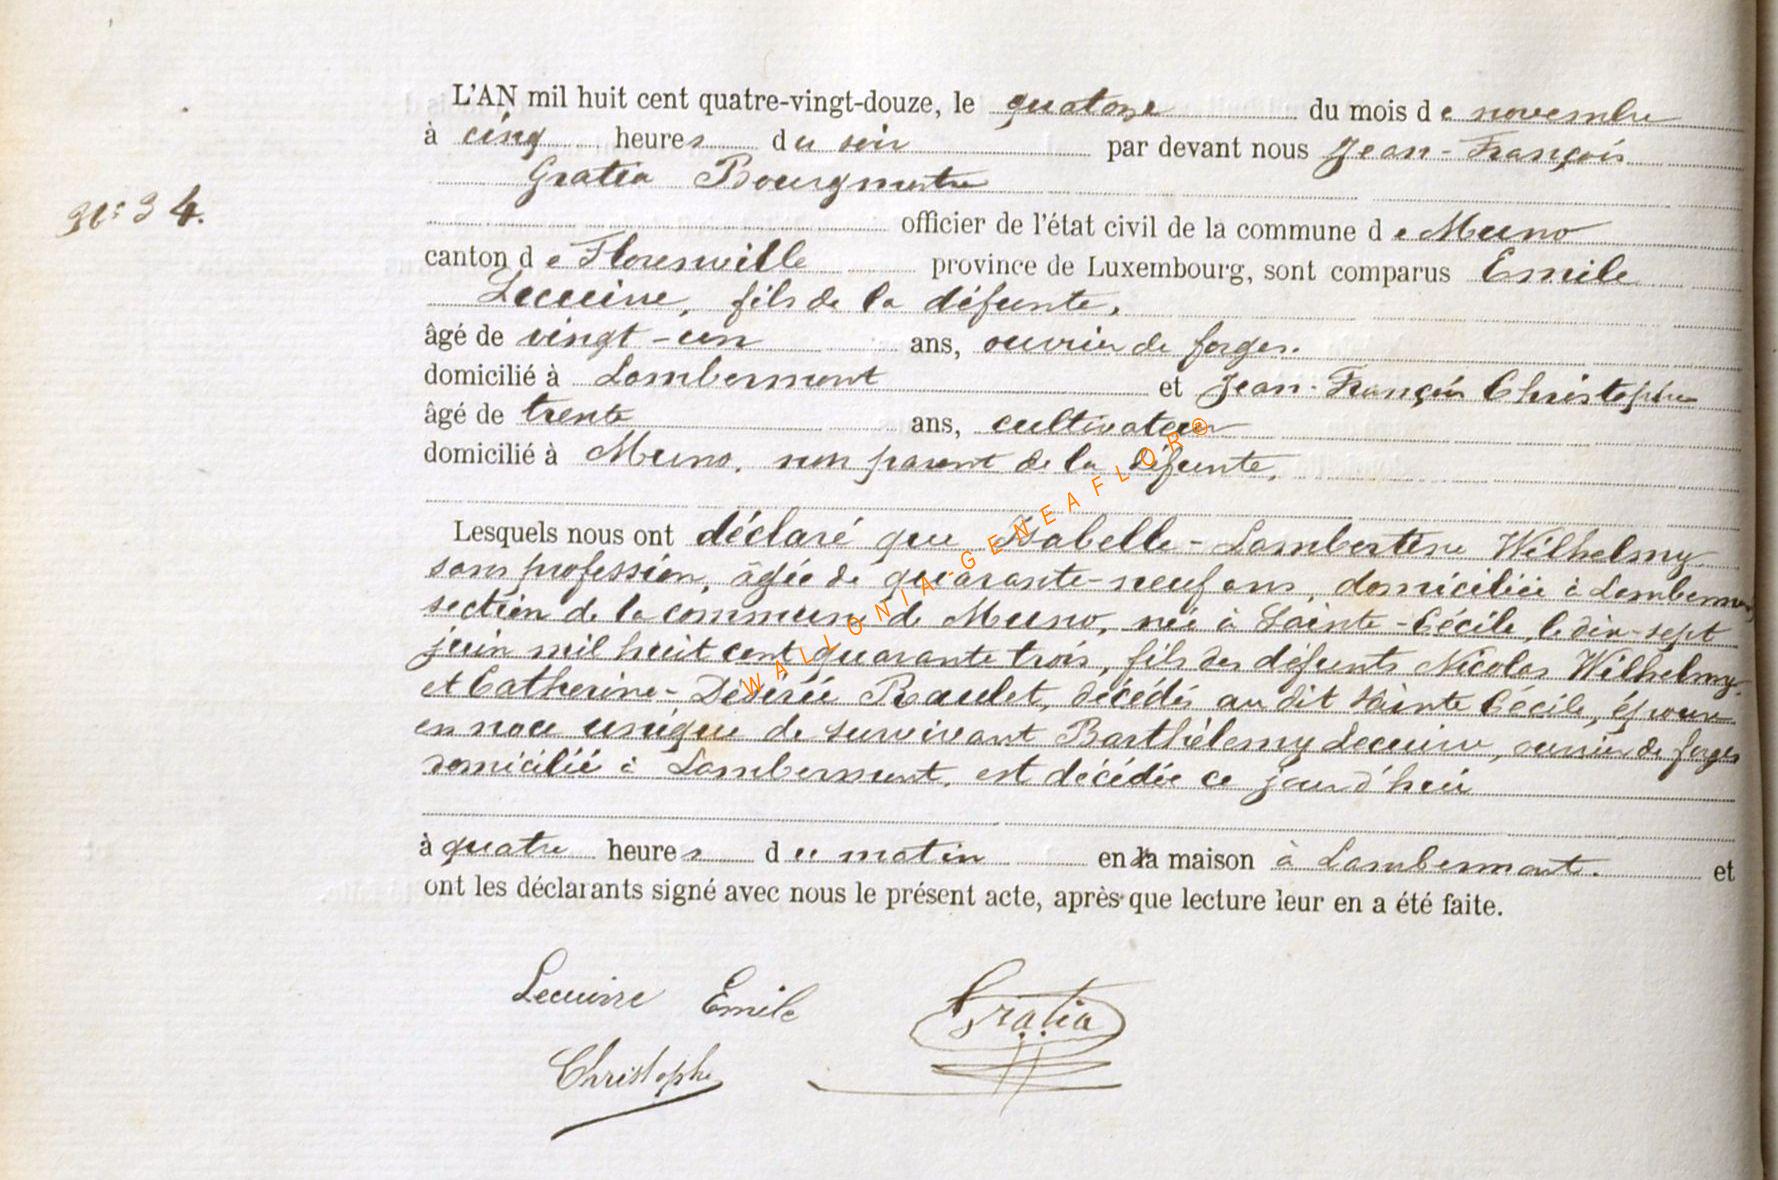 L'AN mil huit cent quatre-vingt-douze, le quatorze du mois de novembre
à cinq heures du soir par devant nous Jean-François
Gratia Bourgmestre
N° 34.
officier de l'état civil de la commune de Muno
canton de Florenville province de Luxembourg, sont comparus Emile
Lecuivre, fils de la défunte,
âgé de vingt-un ans, ouvrier de forges.
domicilié à Lambermont et Jean-François Christophe
âgé de trente ans, cultivateur
domicilié à Muno, non parent de la défunte,
Lesquels nous ont déclaré que Isabelle-Lambertine Wilhelmy
sans profession, âgée de quarante-neuf ans, domiciliée à Lambermont
section de la commune de Muno, née à Sainte-Cécile, le dix-sept
juin mil huit cent quarante trois, fille des défunts Nicolas Wilhelmy
et Catherine-Désirée Raulet, décédés au dit Sainte Cécile, épouse
en noce unique de survivant Barthélemy Lecuivre, ouvrier de forges
domicilié à Lambermont, est décédée ce jourd'hui
à quatre heures du matin en sa maison à Lambermont. et
ont les déclarants signé avec nous le présent acte, après que lecture leur en a été faite.
Lecuivre Emile
Gratia
Christophe
WALLONIA-GENEAFLOR®